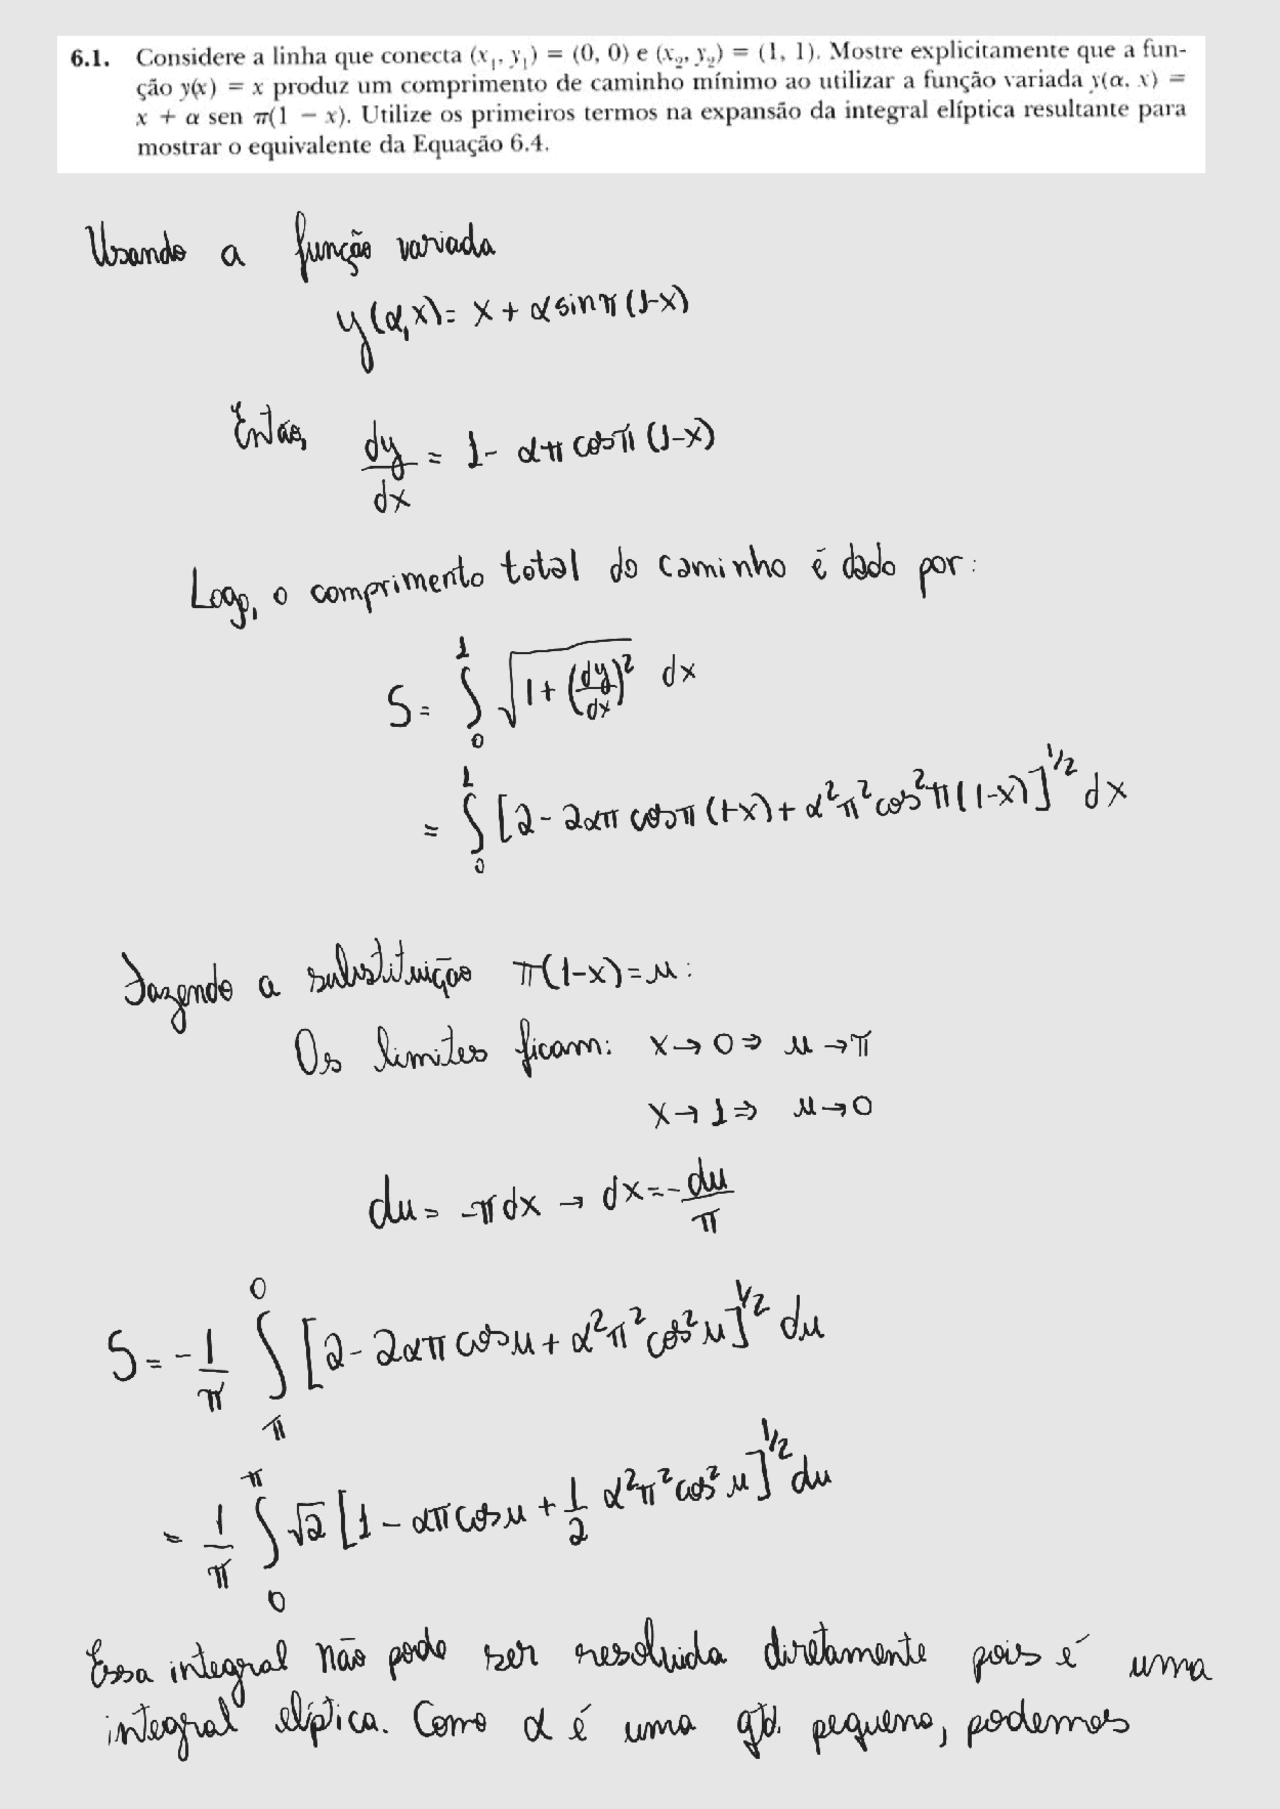 6.1. Considere a linha que conecta (x₁, y₁) = (0, 0) e (x₂, y₂) = (1, 1). Mostre explicitamente que a fun-
ção y(x) = x produz um comprimento de caminho mínimo ao utilizar a função variada y(α, x) =
x + α sen π(1 − x). Utilize os primeiros termos na expansão da integral elíptica resultante para
mostrar o equivalente da Equação 6.4.
Usando a função variada
y(α,x) = x + α sin π (1-x)
Então, dy/dx = 1 - απ cos π (1-x)
Logo, o comprimento total do caminho é dado por:
S = ∫₀¹ √(1 + (dy/dx)²) dx
= ∫₀¹ [2 - 2απ cos π (1-x) + α²π² cos² π (1-x)]^1/2 dx
Fazendo a substituição π(1-x) = u:
Os limites ficam: x → 0 ⇒ u → π
x → 1 ⇒ u → 0
du = -π dx → dx = - du/π
S = - 1/π ∫_π^0 [2 - 2απ cos u + α²π² cos² u]^1/2 du
= 1/π ∫_0^π √2 [1 - απ cos u + 1/2 α²π² cos² u]^1/2 du
Essa integral não pode ser resolvida diretamente pois é uma
integral elíptica. Como α é uma qtd. pequena, podemos